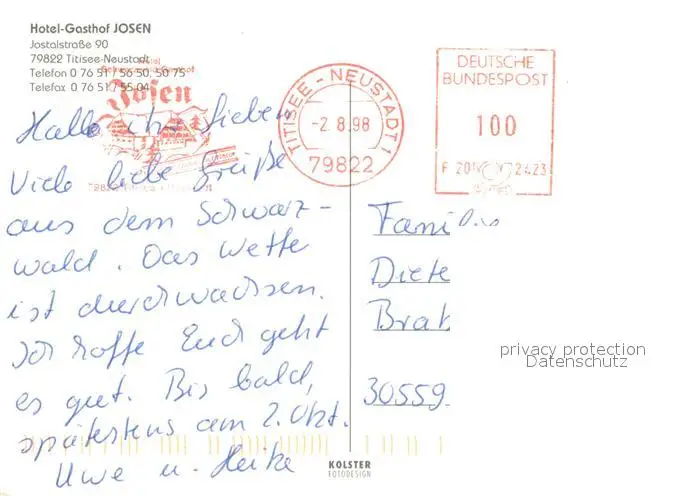 Hotel-Gasthof JOSEN
Jostalstraße 90
79822 Titisee-Neustadt
Telefon 0 76 51 / 56 50, 50 75
Telefax 0 76 51 / 55 04
Josen
TITISEE - NEUSTADT 1
-2.8.98
79822
DEUTSCHE
BUNDESPOST
100
Hallo ihr Lieben
Viele liebe Grüße
aus dem Schwarz-
wald. Das Wetter
ist durchwachsen.
Ich hoffe Euch geht
es gut. Bis bald,
spätestens am 2. Okt.
Uwe u. Heike
Familie
Diete
Brat
30559
privacy protection
Datenschutz
KOLSTER
FOTODESIGN